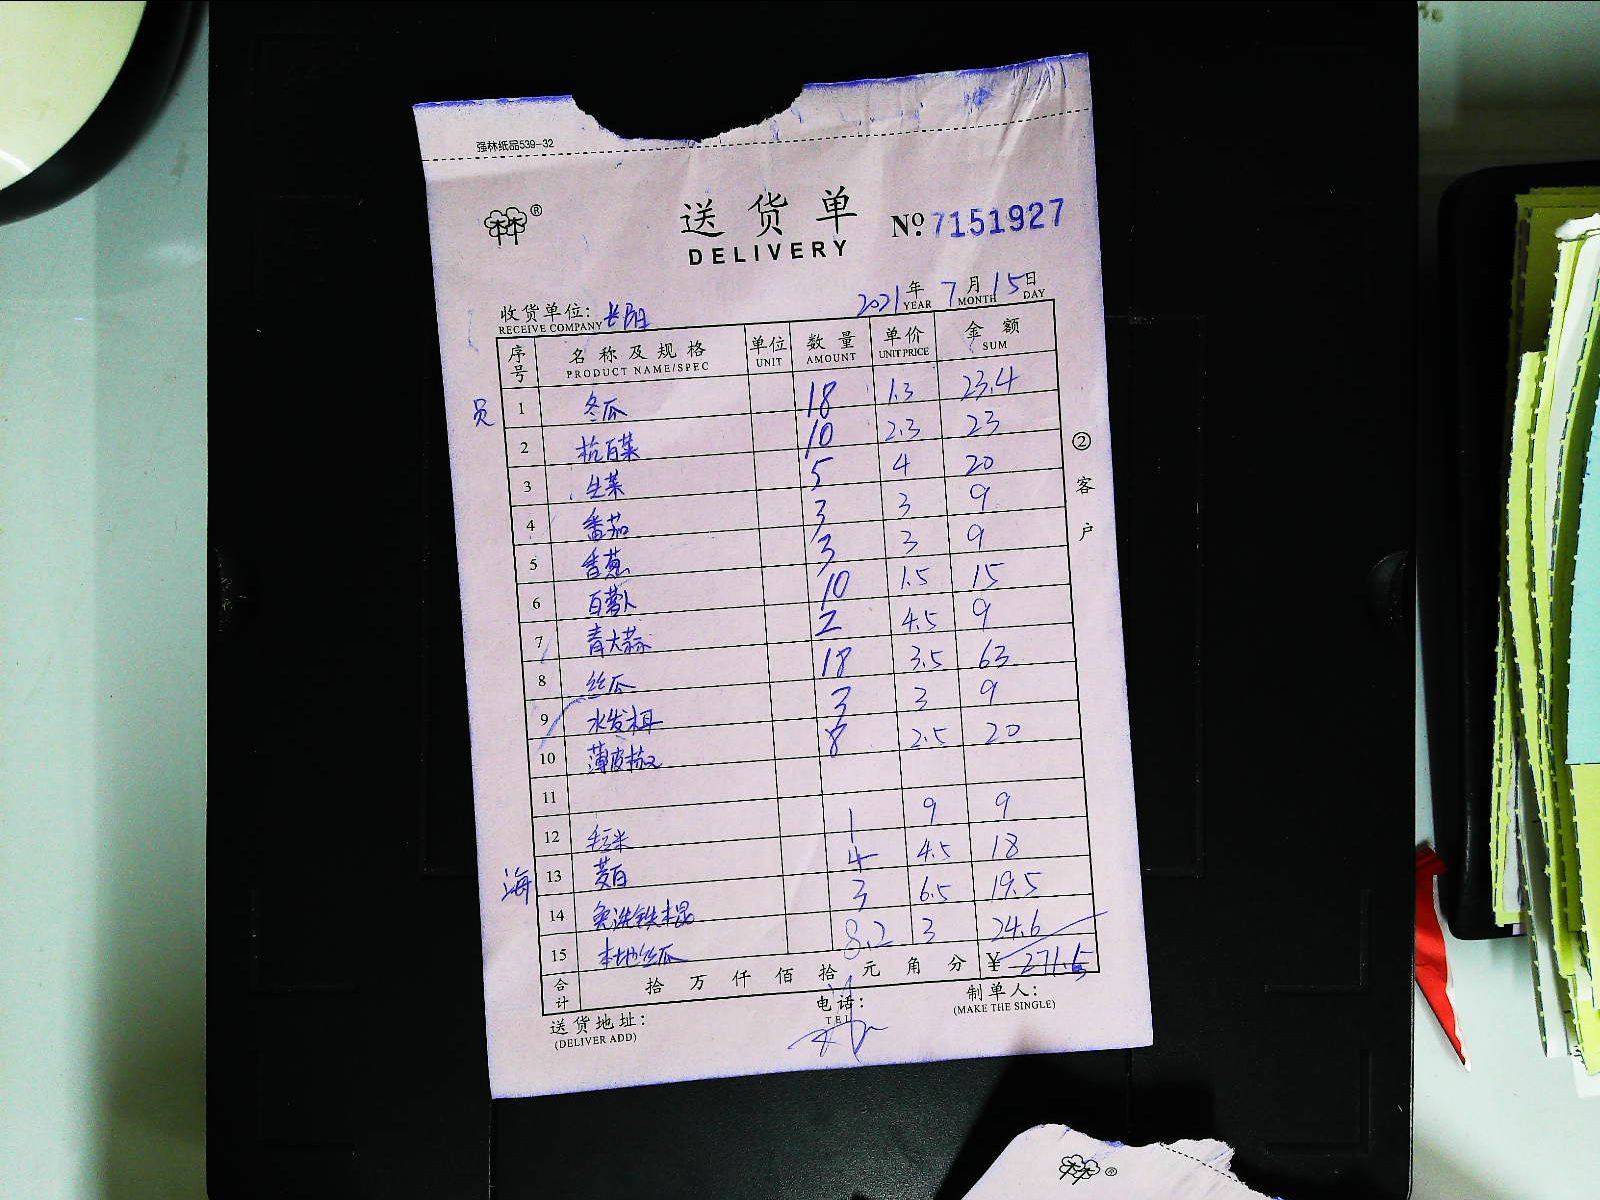 强林纸品539-32
林林®
送货单 № 7151927
DELIVERY
收货单位: 长阳 2021年 7月 15日
RECEIVE COMPANY YEAR MONTH DAY
序号 名称及规格 单位 数量 单价 金额
PRODUCT NAME/SPEC UNIT AMOUNT UNIT PRICE SUM
员 1 冬瓜 18 1.3 23.4
2 杭百菜 10 2.3 23
3 生菜 5 4 20
4 番茄 3 3 9
5 香葱 3 3 9
6 百萝卜 10 1.5 15
7 青大蒜 2 4.5 9
8 丝瓜 18 3.5 63
9 水发木耳 3 3 9
10 薄皮椒 8 2.5 20
11
12 毛豆米 1 9 9
海 13 茭白 4 4.5 18
14 免洗铁棍 3 6.5 19.5
15 本地丝瓜 8.2 3 24.6
合计 拾 万 仟 佰 拾 元 角 分 ¥ 271.5
送货地址: 电话: 制单人:
(DELIVER ADD) TEL (MAKE THE SINGLE)
② 客户
林林®